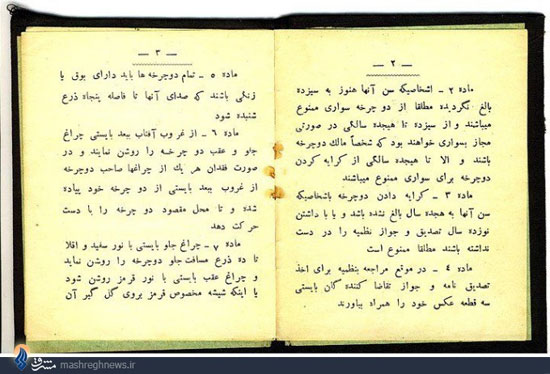 — ۲ —
ماده ۲ ـ اشخاصیکه سن آنها هنوز به سیزده
بالغ نگردیده مطلقا از دو چرخه سواری ممنوع
میباشند و از سیزده تا هیجده سالگی در صورتی
مجاز بسواری خواهند بود که شخصاً مالك دوچرخه
باشند و الا تا هیجده سالگی از کرایه کردن
دوچرخه برای سواری ممنوع میباشند
ماده ۳ ـ کرایه دادن دوچرخه باشخاصیکه
سن آنها به هجده سال بالغ نشده باشد و یا با داشتن
نوزده سال تصدیق و جواز نظمیه را در دست
نداشته باشند مطلقا ممنوع است
ماده ٤ ـ در موقع مراجعه بنظمیه برای اخذ
تصدیق نامه و جواز تقاضا کننده گان بایستی
سه قطعه عکس خود را همراه بیاورند
— ۳ —
ماده ۵ ـ تمام دوچرخه ها باید دارای بوق یا
زنگی باشند که صدای آنها تا فاصله پنجاه ذرع
شنیده شود
ماده ٦ ـ از غروب آفتاب ببعد بایستی چراغ
جاو و عقب دو چرخه را روشن نمایند و در
صورت فقدان هر یك از چراغها صاحب دوچرخه
از غروب ببعد بایستی از دو چرخه خود پیاده
شده و تا محل مقصود دو چرخه را با دست
حرکت دهد
ماده ۷ ـ چراغ جاو بایستی با نور سفید و اقلا
تا ده ذرع مسافت جاو دوچرخه را روشن نماید
و چراغ عقب بایستی با نور قرمز روشن شود
یا اینکه شیشه مخصوص قرمز بروی گل گیر آن
مشرق
mashreghnews.ir